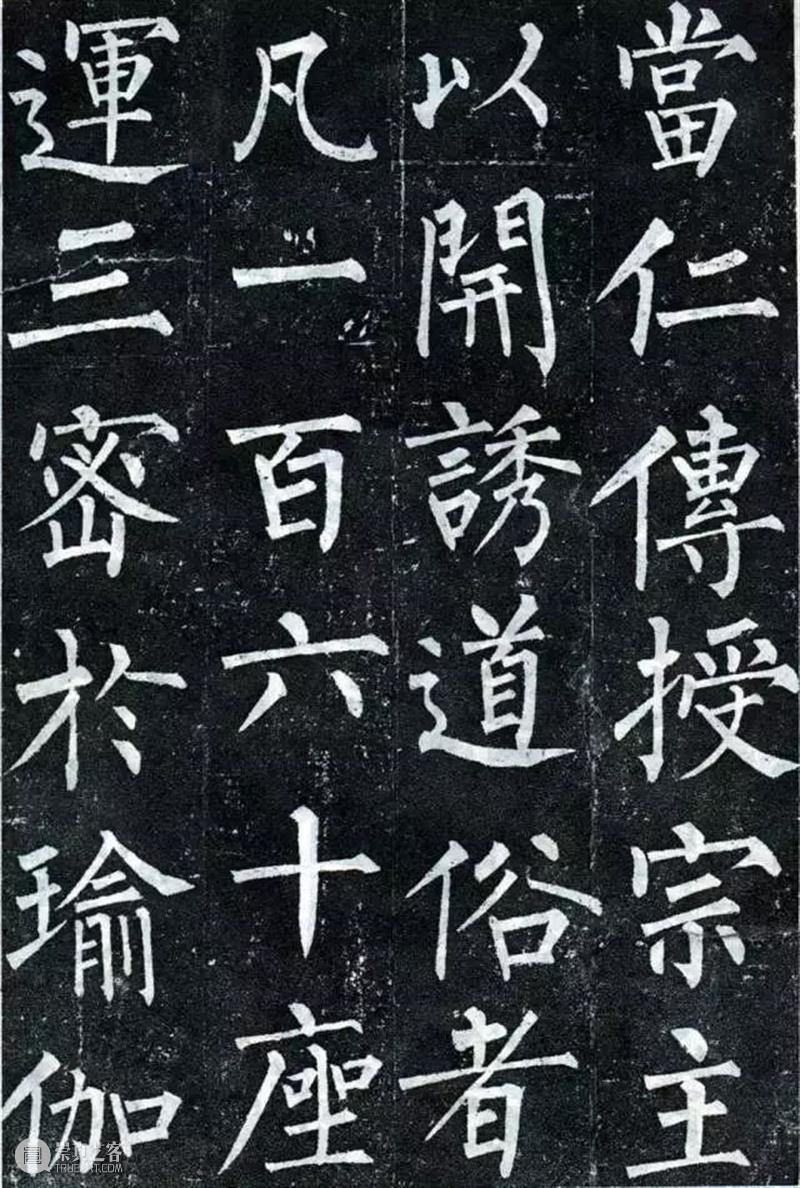 當仁傳授宗主
以開誘道俗者
凡一百六十座
運三密於瑜伽
崇真之客
TRUEART.COM